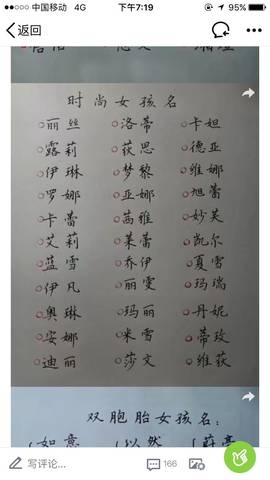 中国移动 4G 下午7:19 95%
返回
时尚女孩名
丽丝 洛蒂 卡妲
露莉 荻思 德亚
伊琳 梦黎 维娜
罗娜 亚娜 旭蕾
卡蕾 茜雅 妙芙
艾莉 莱蕾 凯尔
蓝雪 乔伊 夏雪
伊凡 丽雯 玛瑞
奥琳 玛丽 丹妮
安娜 米雪 蒂玫
迪丽 莎文 维荻
双胞胎女孩名:
如意 以然
写评论... 166